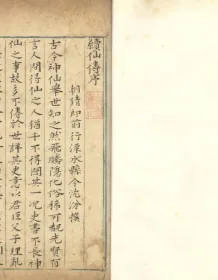 續仙傳序
朝請郎前行溧水縣令沈汾撰
古今神仙舉世知之然飛騰隱化俗稀可覩先賢有
言人間得仙之人猶千不得聞其一况史書不長神
仙之事故多不傳於世詳其史意以君臣父子理亂